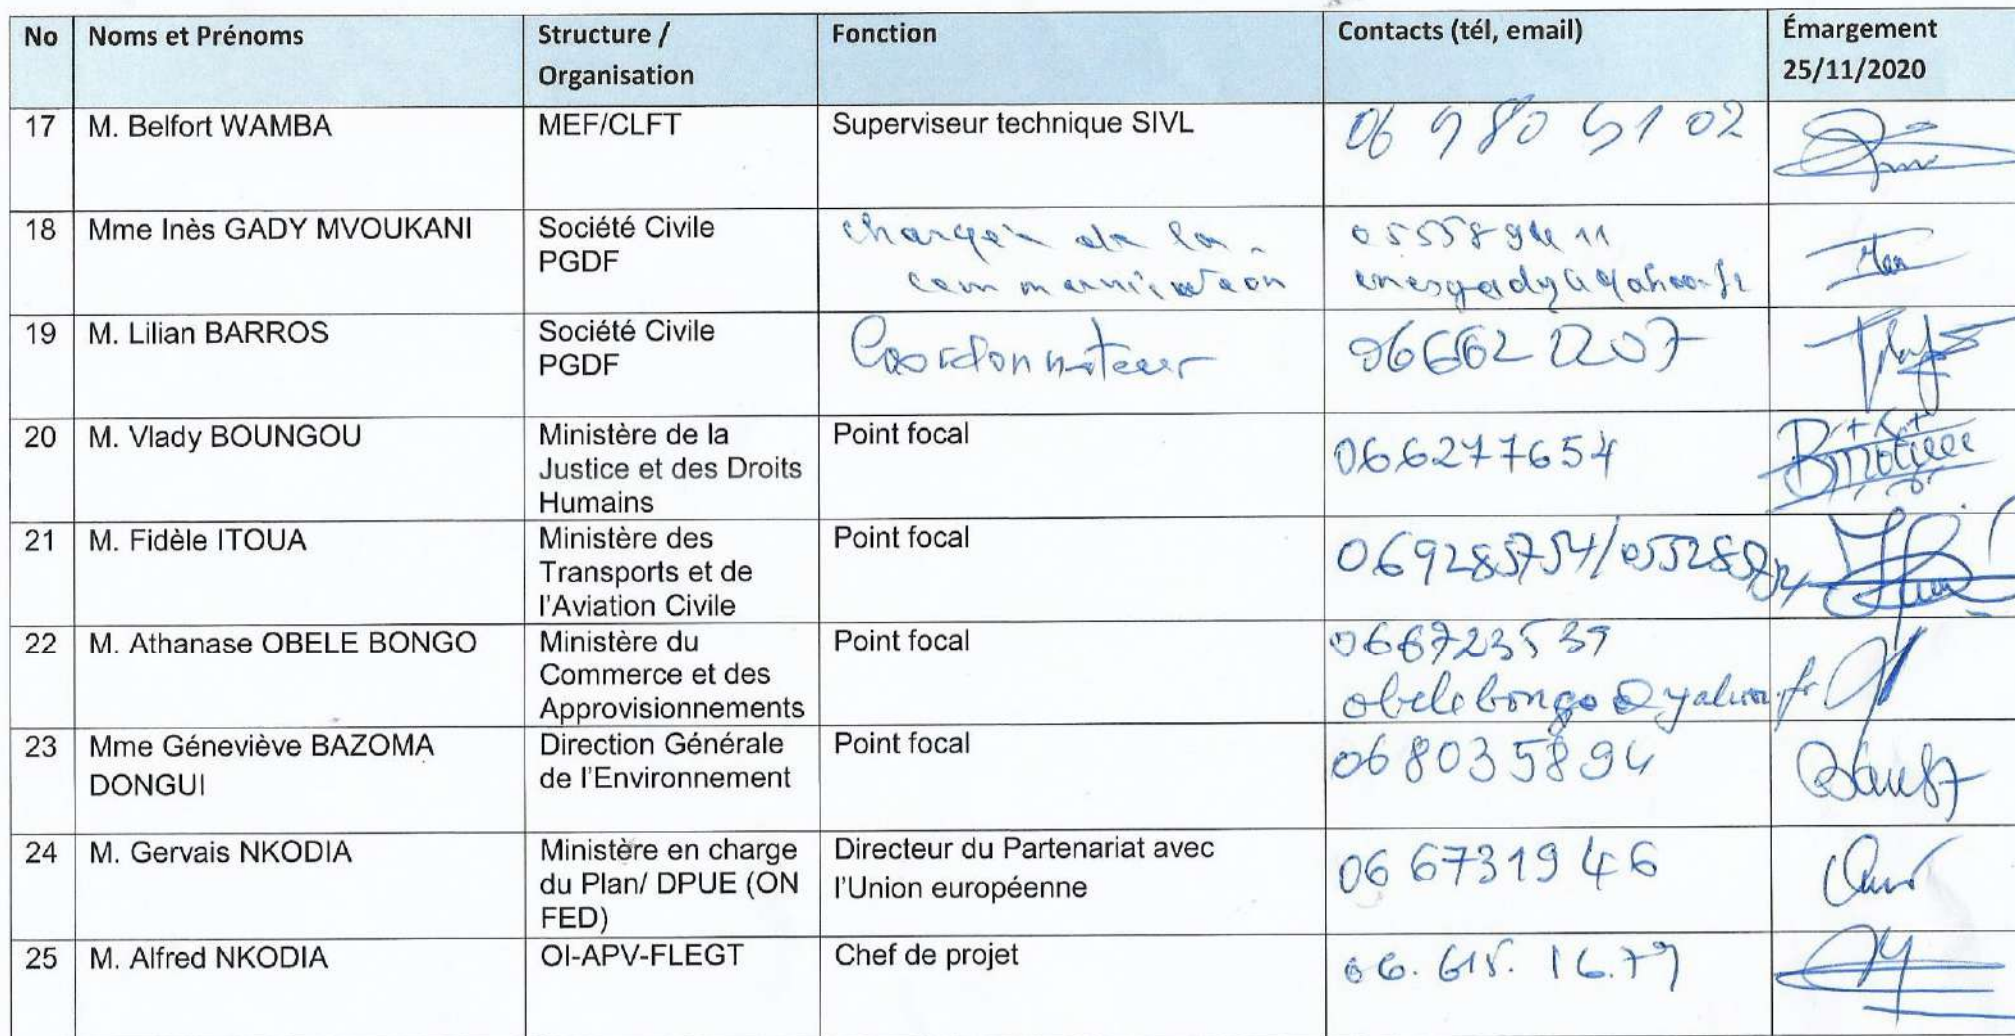 No Noms et Prénoms Structure / Organisation Fonction Contacts (tél, email) Émargement 25/11/2020
17 M. Belfort WAMBA MEF/CLFT Superviseur technique SIVL 06 980 51 02
18 Mme Inès GADY MVOUKANI Société Civile PGDF chargée de la communication
19 M. Lilian BARROS Société Civile PGDF Coordonnateur 066622207
20 M. Vlady BOUNGOU Ministère de la Justice et des Droits Humains Point focal 066277654
21 M. Fidèle ITOUA Ministère des Transports et de l'Aviation Civile Point focal 069285754/
22 M. Athanase OBELE BONGO Ministère du Commerce et des Approvisionnements Point focal obelebongo@yahoo.fr
23 Mme Géneviève BAZOMA DONGUI Direction Générale de l'Environnement Point focal 068035894
24 M. Gervais NKODIA Ministère en charge du Plan/ DPUE (ON FED) Directeur du Partenariat avec l'Union européenne 06 6731946
25 M. Alfred NKODIA OI-APV-FLEGT Chef de projet 06. 615. 16.79